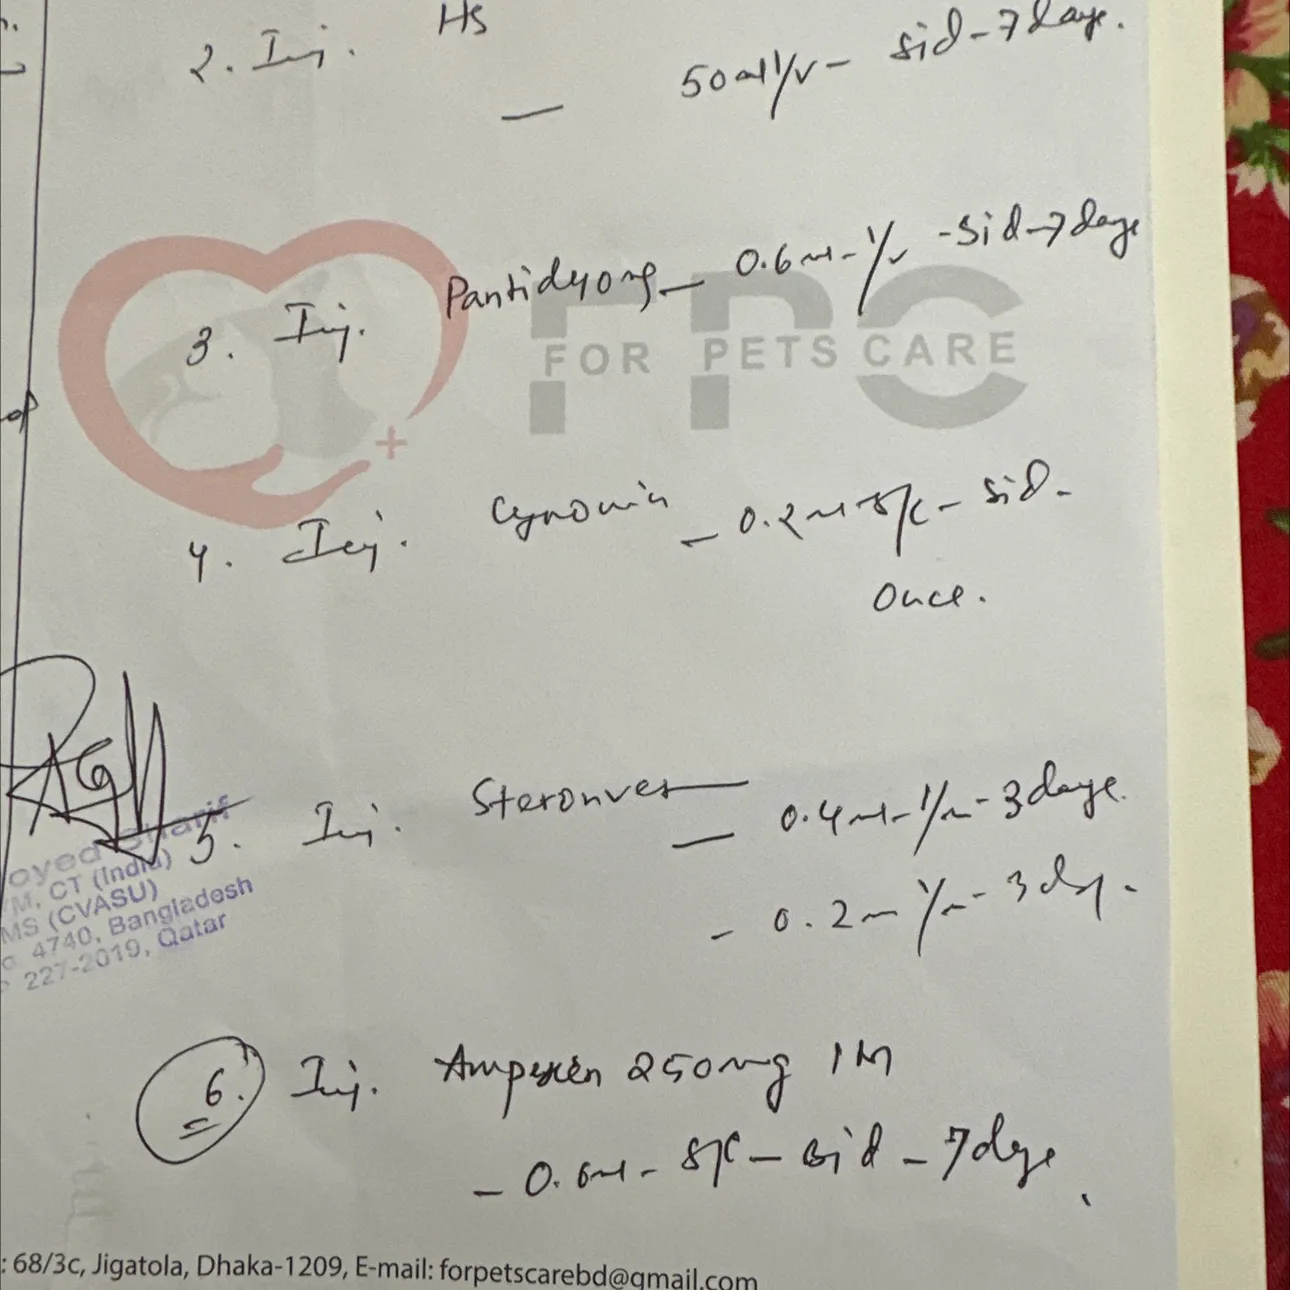 HS
2. Inj. — 50ml I/V – sid – 7 days.
3. Inj. Pantid 40mg – 0.6ml – I/V – sid – 7 days
FOR PETS CARE
4. Inj. – 0.2ml S/C – sid –
Once.
5. Inj. Steronvet — 0.4ml – I/M – 3 days.
– 0.2ml I/M – 3 days.
Sharif
CT (India)
MS (CVASU)
4740, Bangladesh
227-2019, Qatar
6. Inj. 250mg IM
– S/C – – 7 days.
: 68/3c, Jigatola, Dhaka-1209, E-mail: forpetscarebd@gmail.com